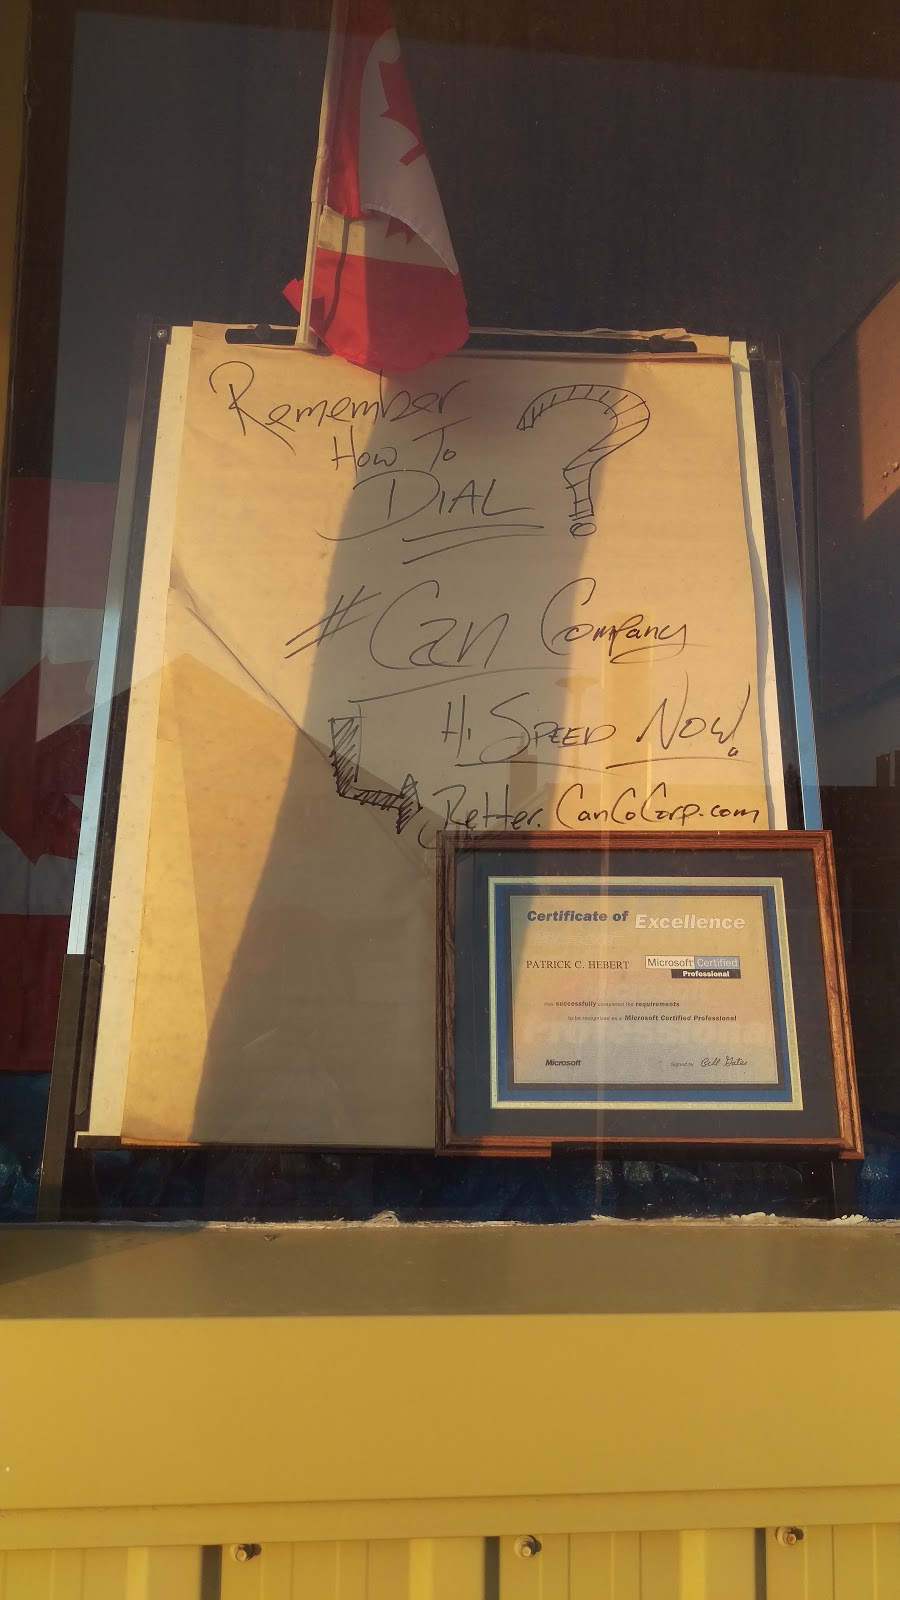 Remember
How To
DIAL ?
#Can Company
Hi SPEED NOW!
Better.CanCoCorp.com
Certificate of Excellence
PATRICK C. HEBERT
Microsoft Certified
Professional
has successfully completed the requirements
to be recognized as a Microsoft Certified Professional
Microsoft
Signed by Bill Gates